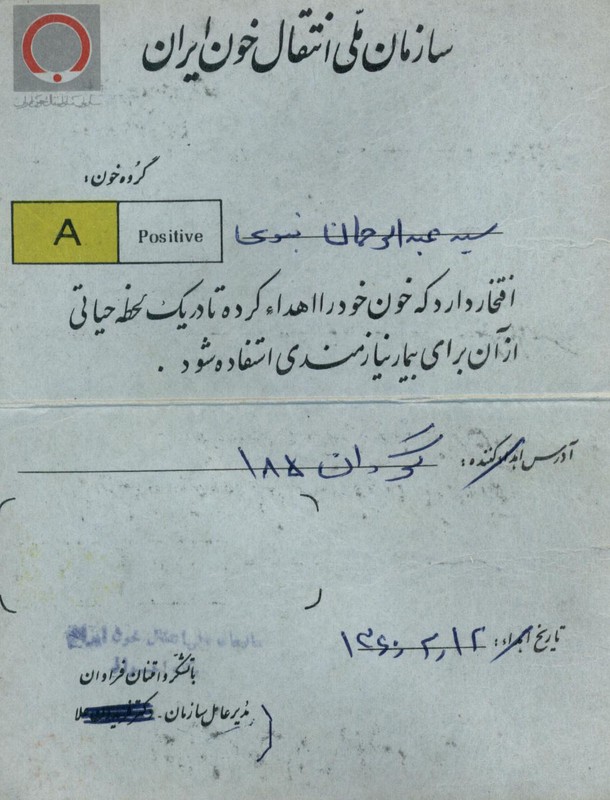 سازمان ملّی انتقال خون ایران
گروه خون:
A Positive
سید عبدالرحمان نبوی
افتخار دارد که خون خود را اهداء کرده تا در یک لحظه حیاتی
از آن برای بیمار نیازمندی استفاده شود.
آدرس اهداء کننده: گردان ۱۸۵
تاریخ اهداء: ۱۳۶۰٫۲٫۱۲
سازمان ملی انتقال خون ایران
با تشکر و امتنان فراوان
مدیر عامل سازمان -